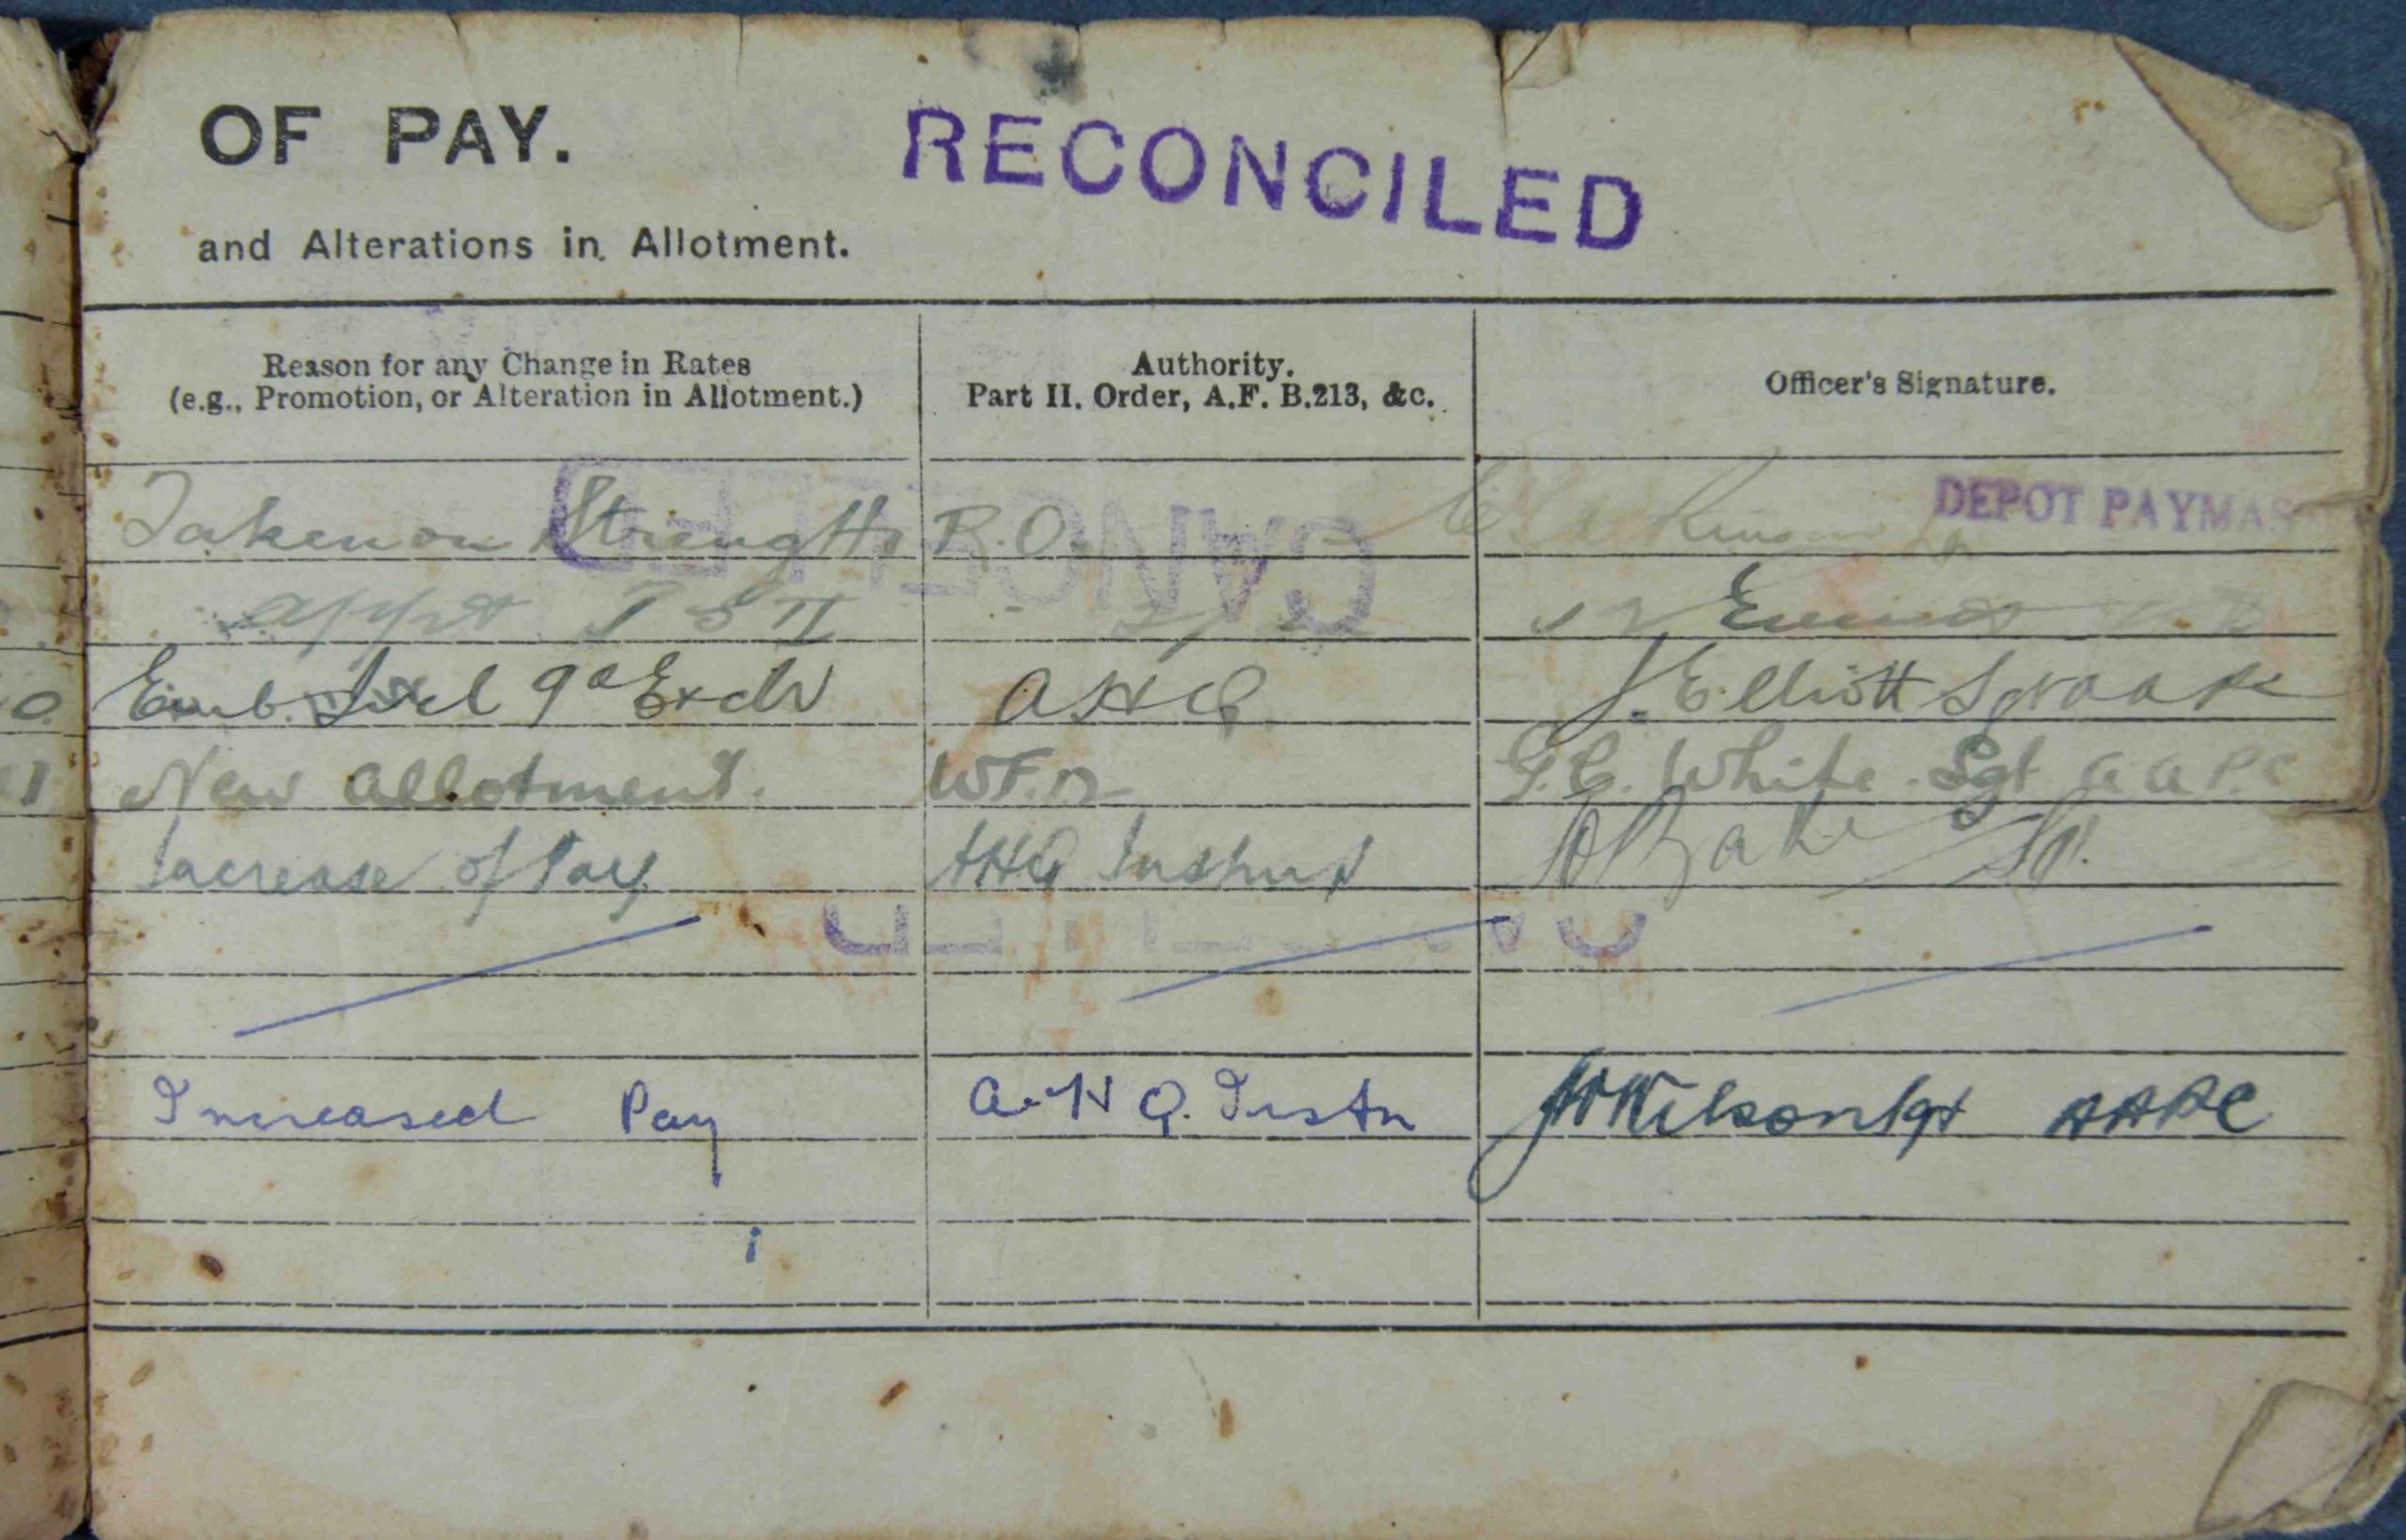 OF PAY. RECONCILED
and Alterations in Allotment.
Reason for any Change in Rates
(e.g., Promotion, or Alteration in Allotment.)
Authority.
Part II. Order, A.F. B.213, &c.
Officer's Signature.
Taken on Strength R.O. DEPOT PAYMAS
CANCELLED
appt II
Emb. 9d Exch AHQ J. Elliott Sgt AAPC
New allotment. WF.12 G.C. White Sgt AAPC
Increase of Pay AHQ Sgt.
Increased Pay A.H.Q. Instn JWWilson Sgt AAPC